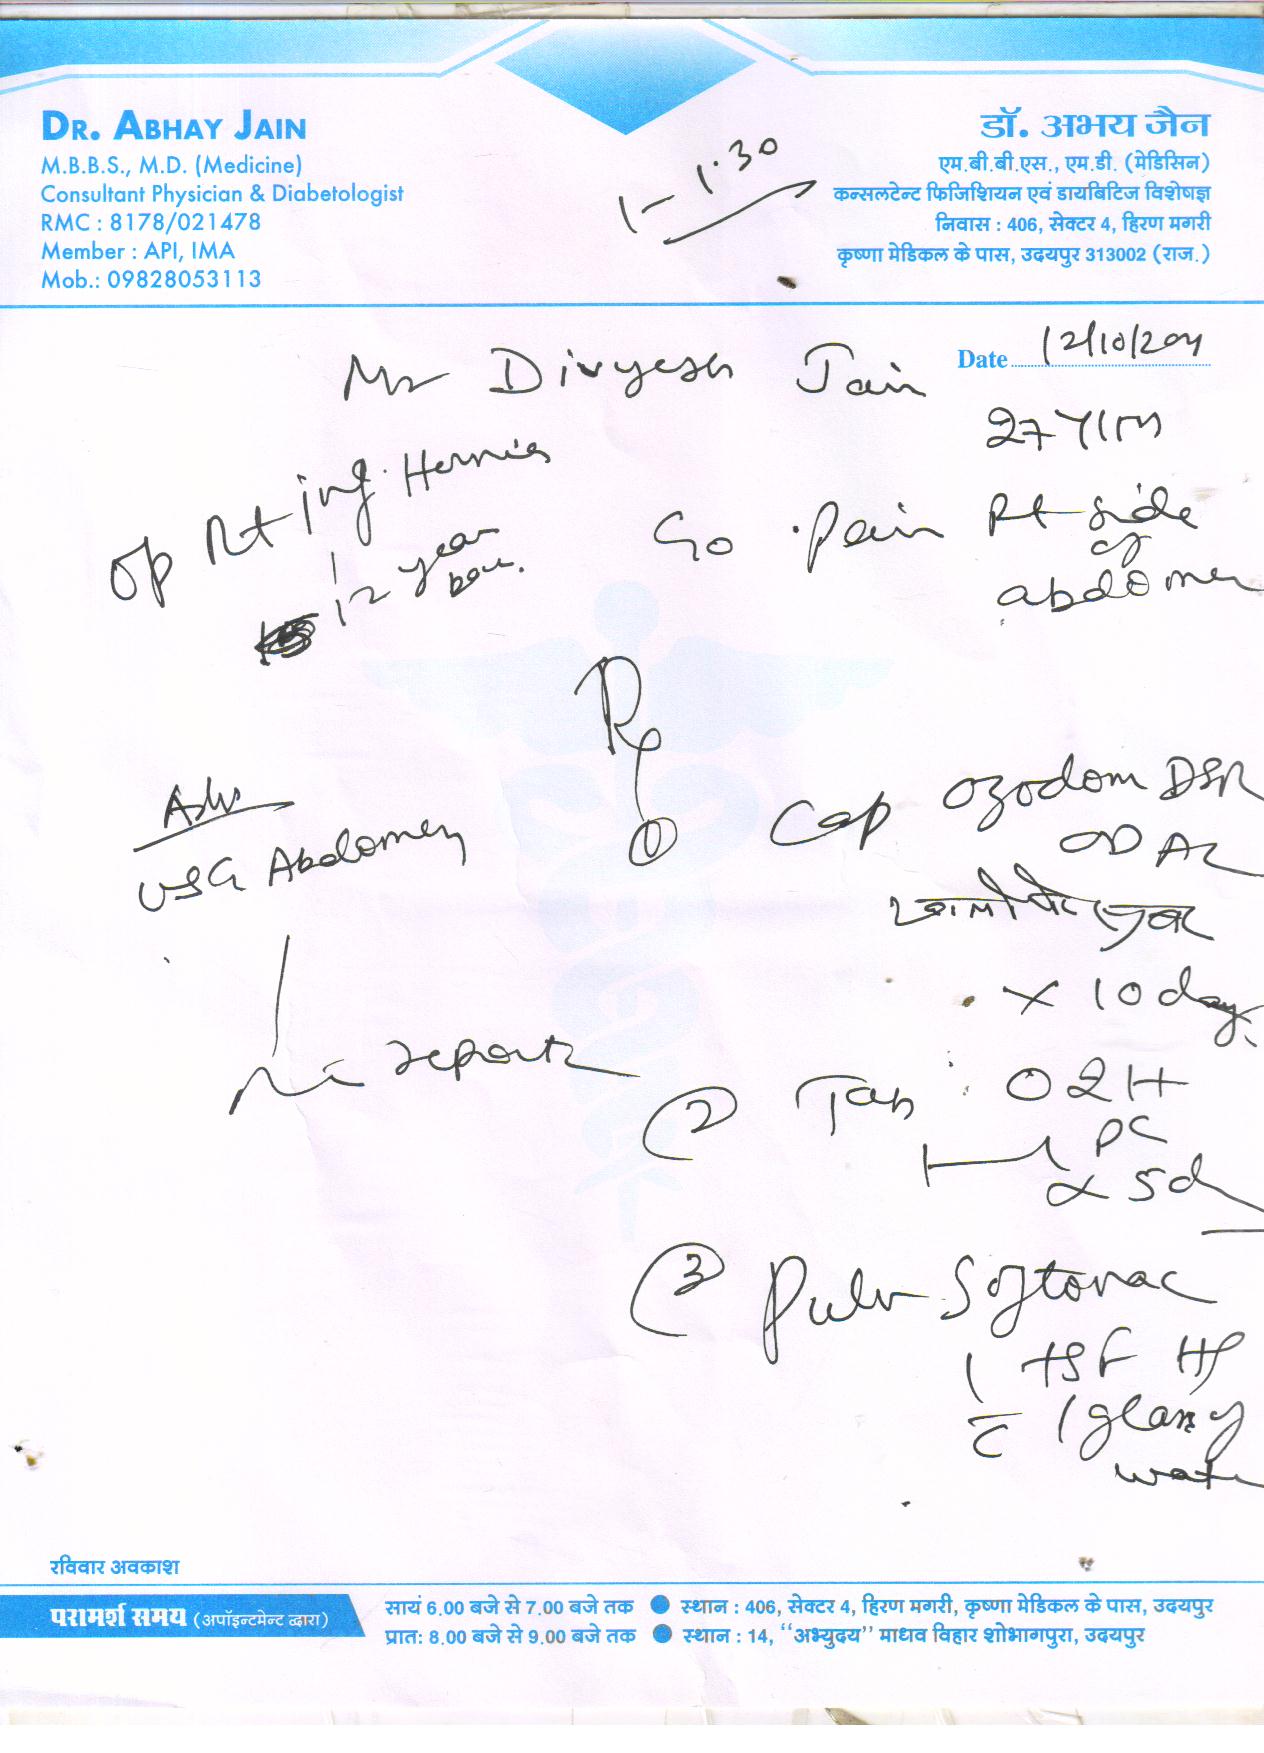 DR. ABHAY JAIN
M.B.B.S., M.D. (Medicine)
Consultant Physician & Diabetologist
RMC : 8178/021478
Member : API, IMA
Mob.: 09828053113
1-1.30
डॉ. अभय जैन
एम.बी.बी.एस., एम.डी. (मेडिसिन)
कन्सलटेन्ट फिजिशियन एवं डायबिटिज विशेषज्ञ
निवास : 406, सेक्टर 4, हिरण मगरी
कृष्णा मेडिकल के पास, उदयपुर 313002 (राज.)
Date 12/10/
Mr Divyesh Jain
27 Y/M
Op Rt ing. Hernia
12 year
C/o Pain Rt side
of
abdomen
Rx
Adv
USG Abdomen
report
① Cap Ozodom DSR
OD AC
खाली पेट
x 10 days
② Tab O2H
PC
x 5d
③ Pulv Softovac
1 tsf HS
c 1 glass of
water
रविवार अवकाश
परामर्श समय (अपॉइन्टमेन्ट द्वारा)
सायं 6.00 बजे से 7.00 बजे तक ● स्थान : 406, सेक्टर 4, हिरण मगरी, कृष्णा मेडिकल के पास, उदयपुर
प्रात: 8.00 बजे से 9.00 बजे तक ● स्थान : 14, ‘‘अभ्युदय’’ माधव विहार शोभागपुरा, उदयपुर